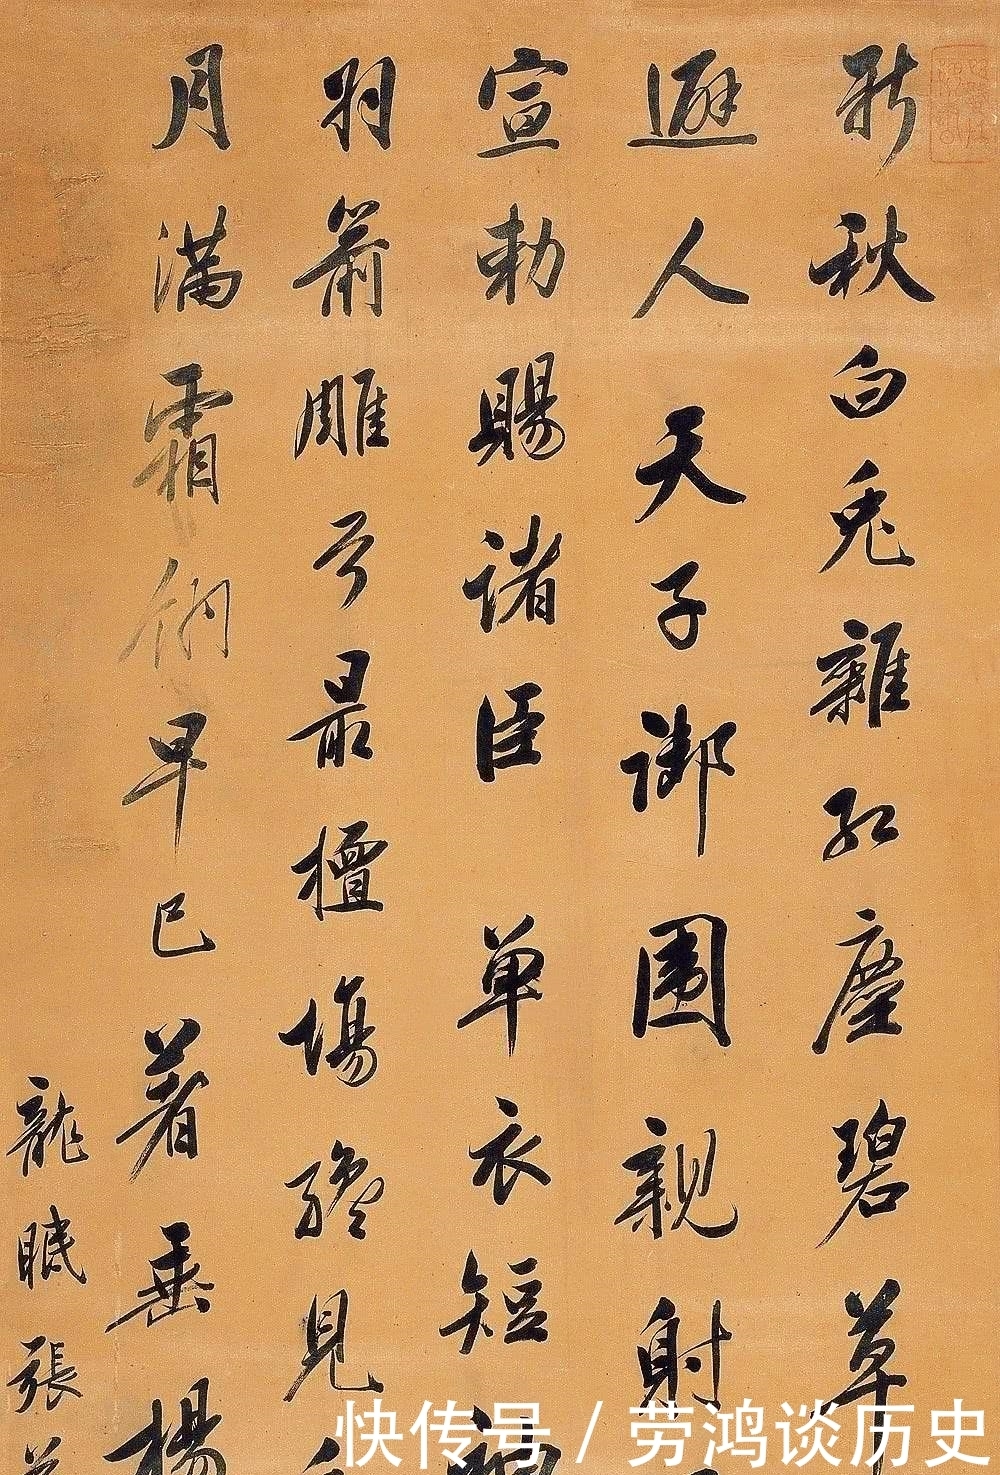 新秋白兔雜紅塵碧草
避人天子御圍親射
宣勅賜諸臣 單衣短
羽箭雕弓最擅場見
月滿霜鉤早已著垂楊
龍眠張
快传号 / 劳鸿谈历史